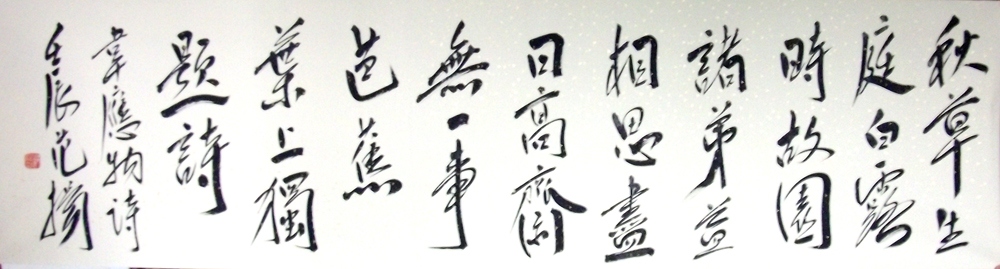 秋草生
庭白露
時故園
諸弟益
相思盡
日高齋
無一事
芭蕉
葉上獨
題詩
韋應物詩
壬辰范